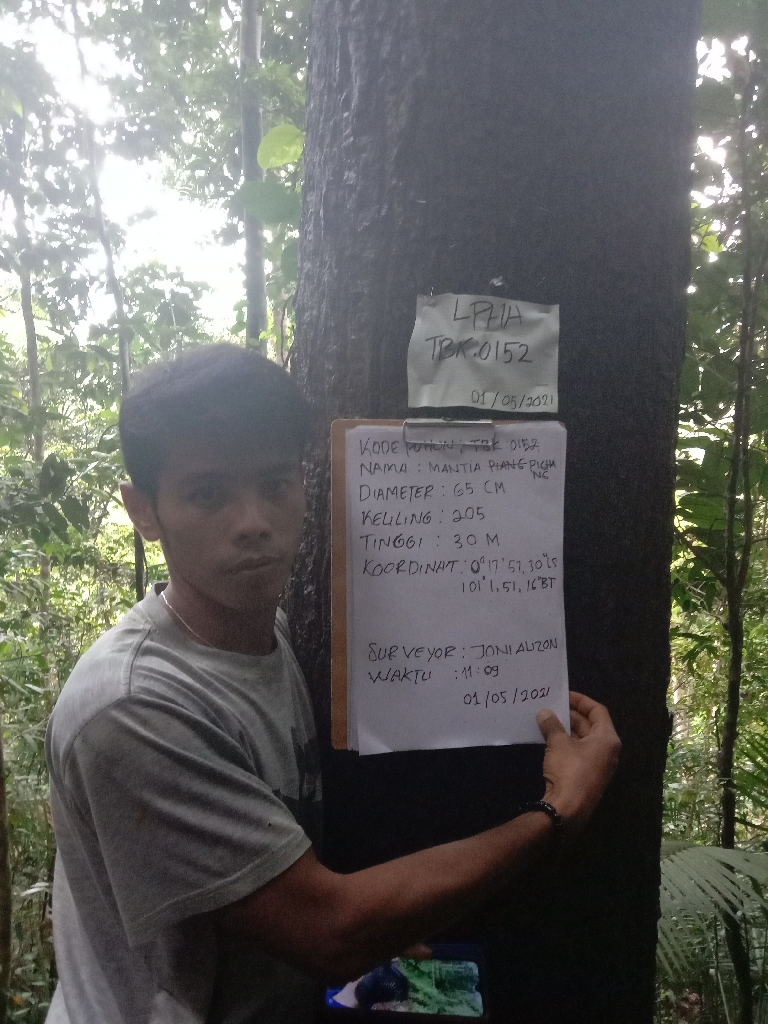 LPHA
TBK.0152
01/05/2021
KODE POHON : TBK 0152
NAMA : MANTIA PIANG PICHA
NE
DIAMETER : 65 CM
KELILING : 205
TINGGI : 30 M
KOORDINAT : 0°17'57,30"LS
101°1,51,16"BT
SURVEYOR : JONI ALIZON
WAKTU : 11:09
01/05/2021